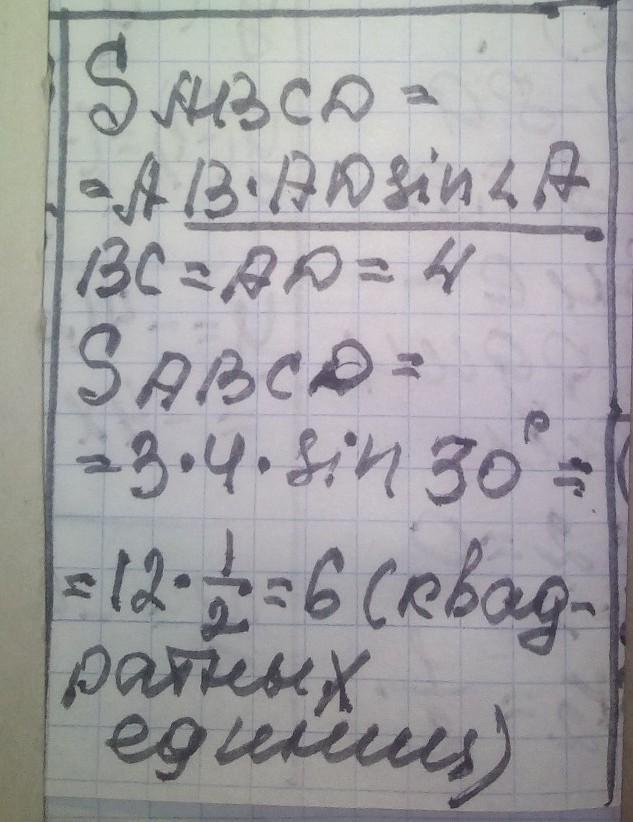 S ABCD =
= AB · AD sin ∠A
BC = AD = 4
S ABCD =
= 3 · 4 · sin 30° =
= 12 · 1/2 = 6 (квад-
ратных
единиц)